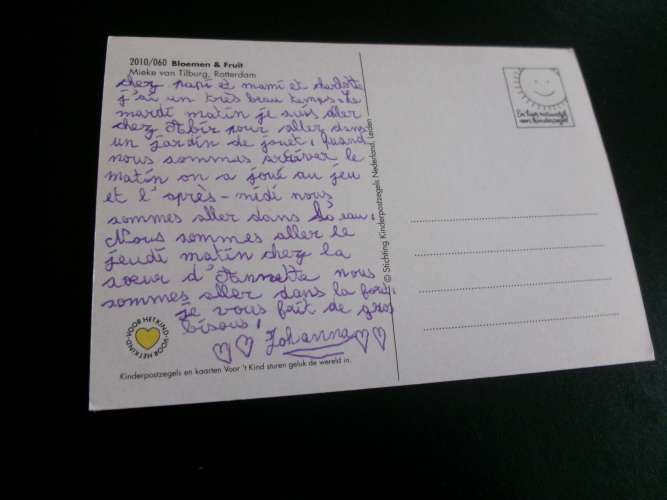 2010/060 Bloemen & Fruit
Mieke van Tilburg, Rotterdam
cher papi et mami et charlotte
j'ai un très beau temps. Le
mardi matin je suis aller
chez Abir pour aller dans
un jardin de jouet. Quand
nous sommes arriver le
matin on a joué au jeu
et l'après-midi nous
sommes aller dans lo eau.
Nous sommes aller le
jeudi matin chez la
soeur d'Annette nous
sommes aller dans la
je vous fait de gros
bisous.
Johanna
VOOR HET KIND · VOOR HET KIND
Kinderpostzegels en kaarten Voor 't Kind sturen geluk de wereld in.
© Stichting Kinderpostzegels Nederland, Leiden
En hier natuurlijk
een kinderzegel